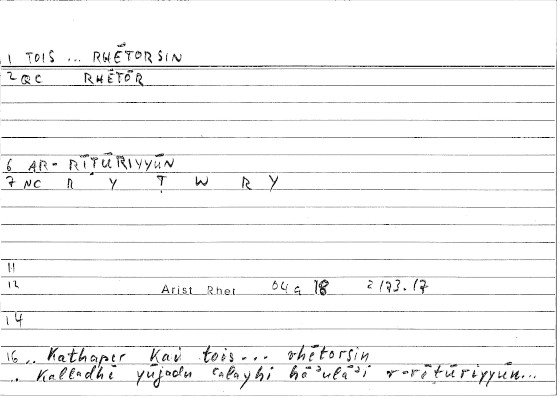 1 TOIS ... RHĒTORSIN
2 QC RHĒTŌR
6 AR- RĪṬŪRIYYŪN
7 NC R Y Ṭ W R Y
11
12 Arist Rhet 04 a 18 2 173.17
14
16 .. Kathaper kai tois... rhētorsin
.. kalladhī yūjadu ʿalayhi hāʾulāʾi r-rīṭūriyyūn...